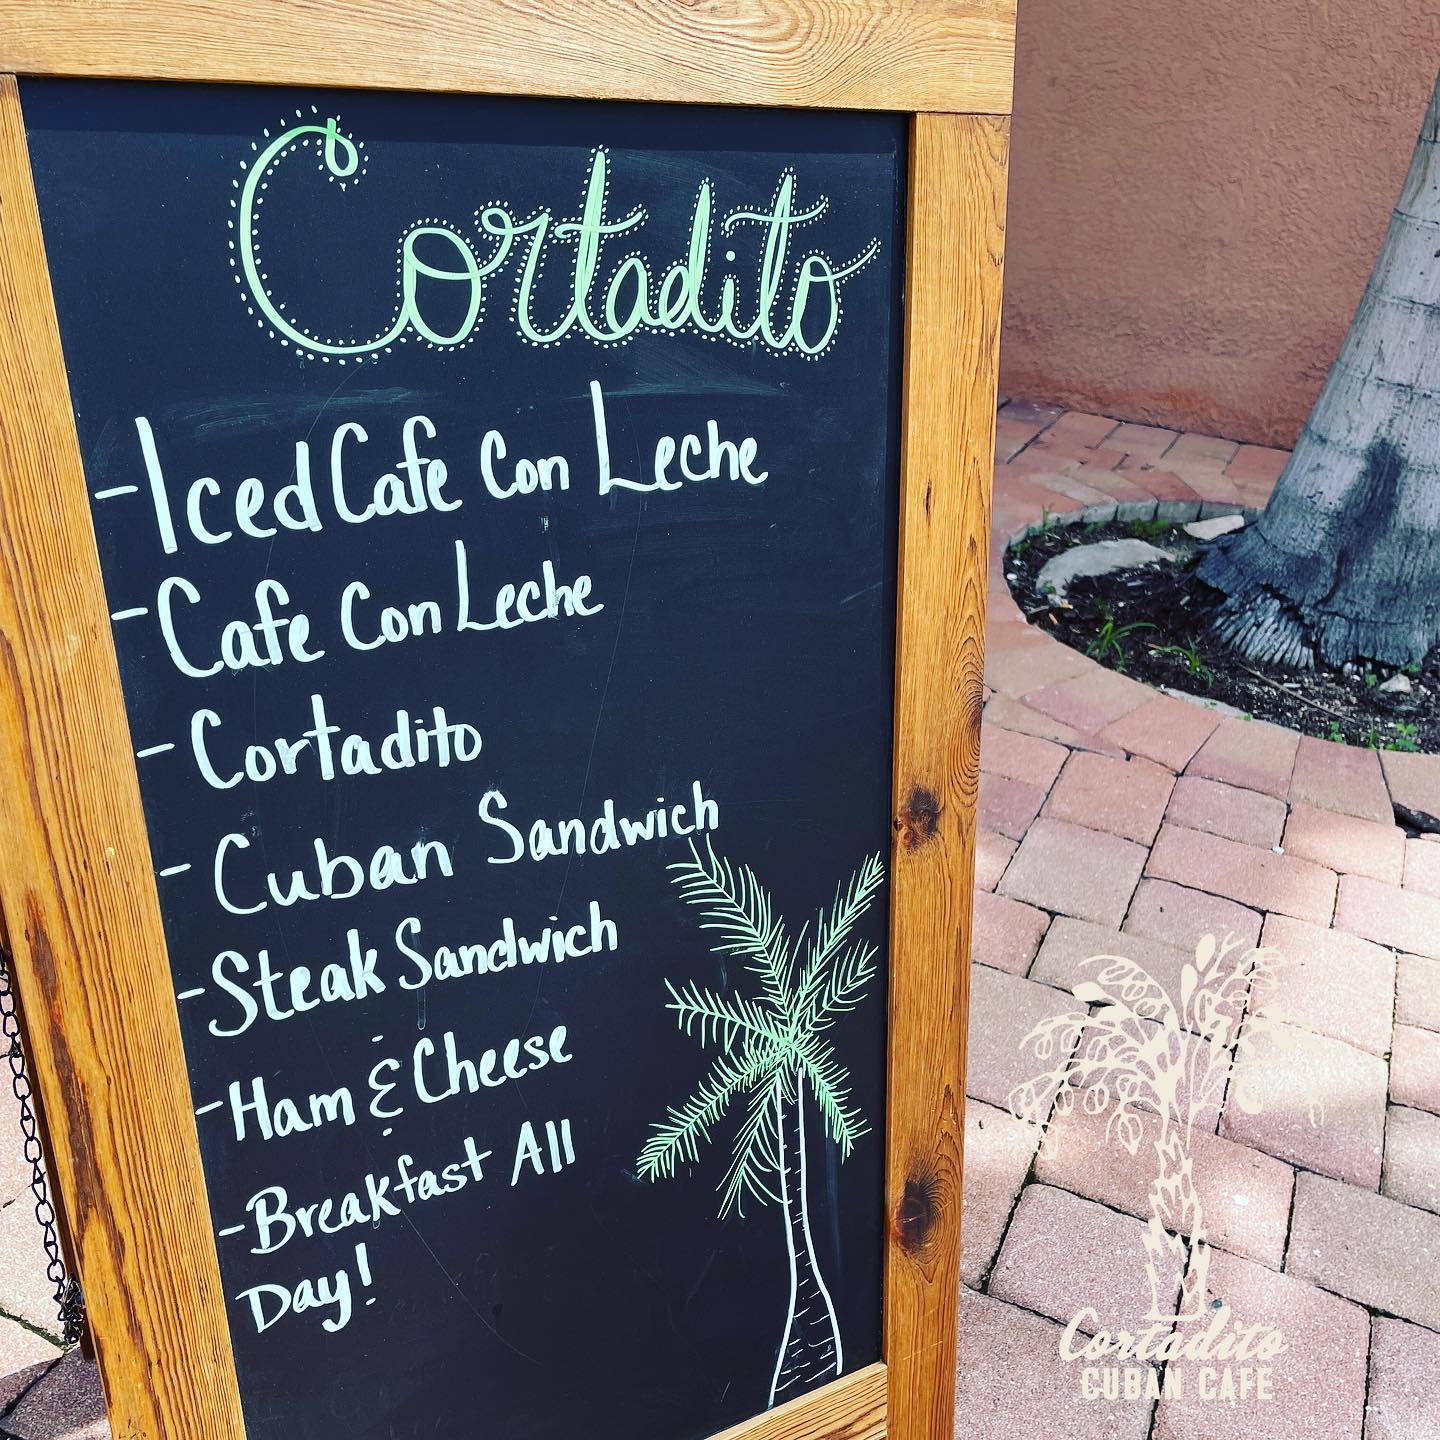 Cortadito
- Iced Cafe Con Leche
- Cafe Con Leche
- Cortadito
- Cuban Sandwich
- Steak Sandwich
- Ham & Cheese
- Breakfast All
Day!
Cortadito
CUBAN CAFE